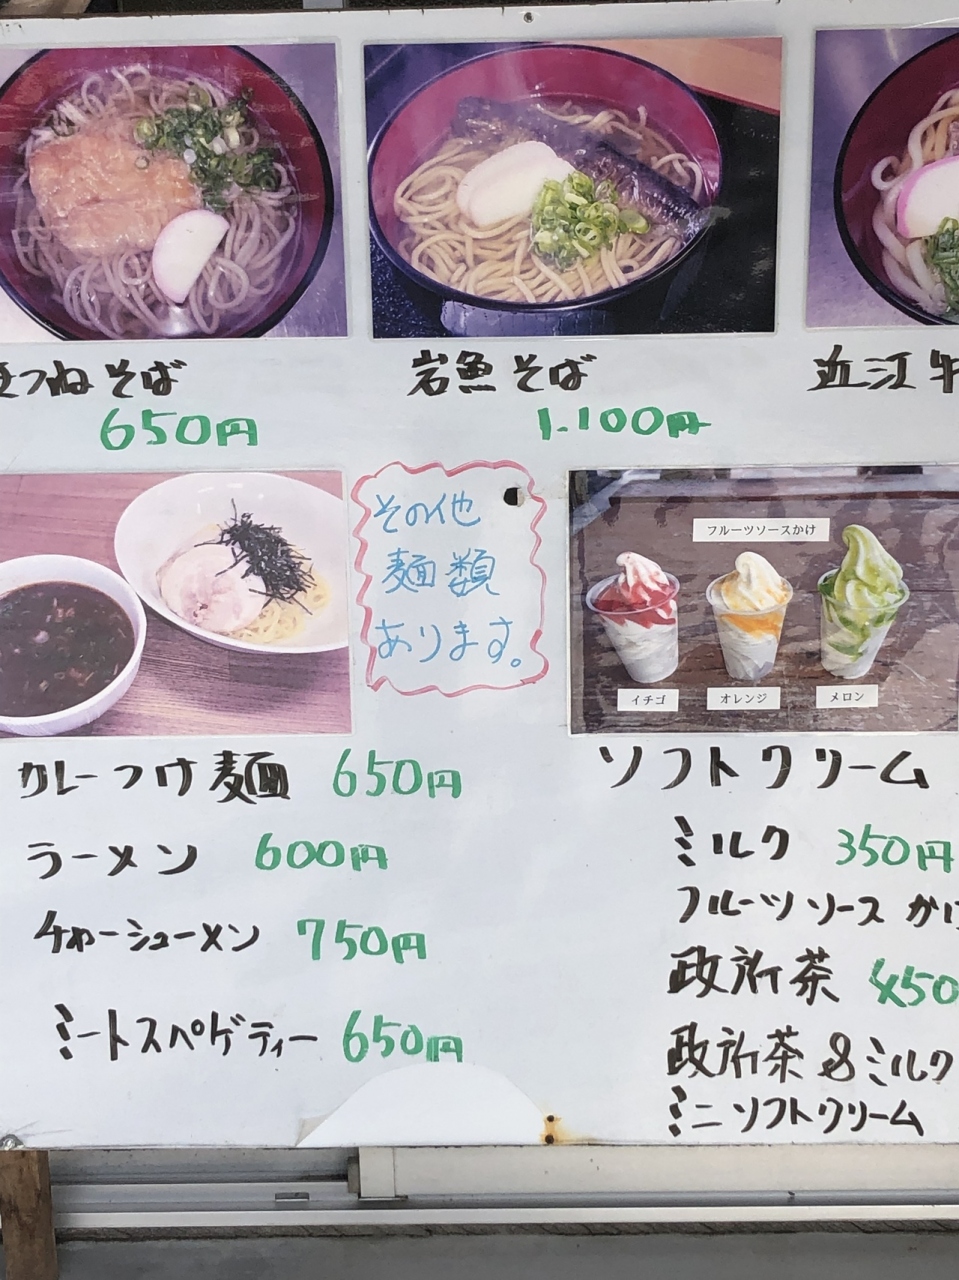 きつねそば
650円
岩魚そば
1.100円
近江牛
その他
麺類
あります。
フルーツソースかけ
イチゴ
オレンジ
メロン
カレーつけ麺 650円
ラーメン 600円
チャーシューメン 750円
ミートスペゲティー 650円
ソフトクリーム
ミルク 350円
フルーツソース かけ
政所茶 450
政所茶&ミルク
ミニソフトクリーム